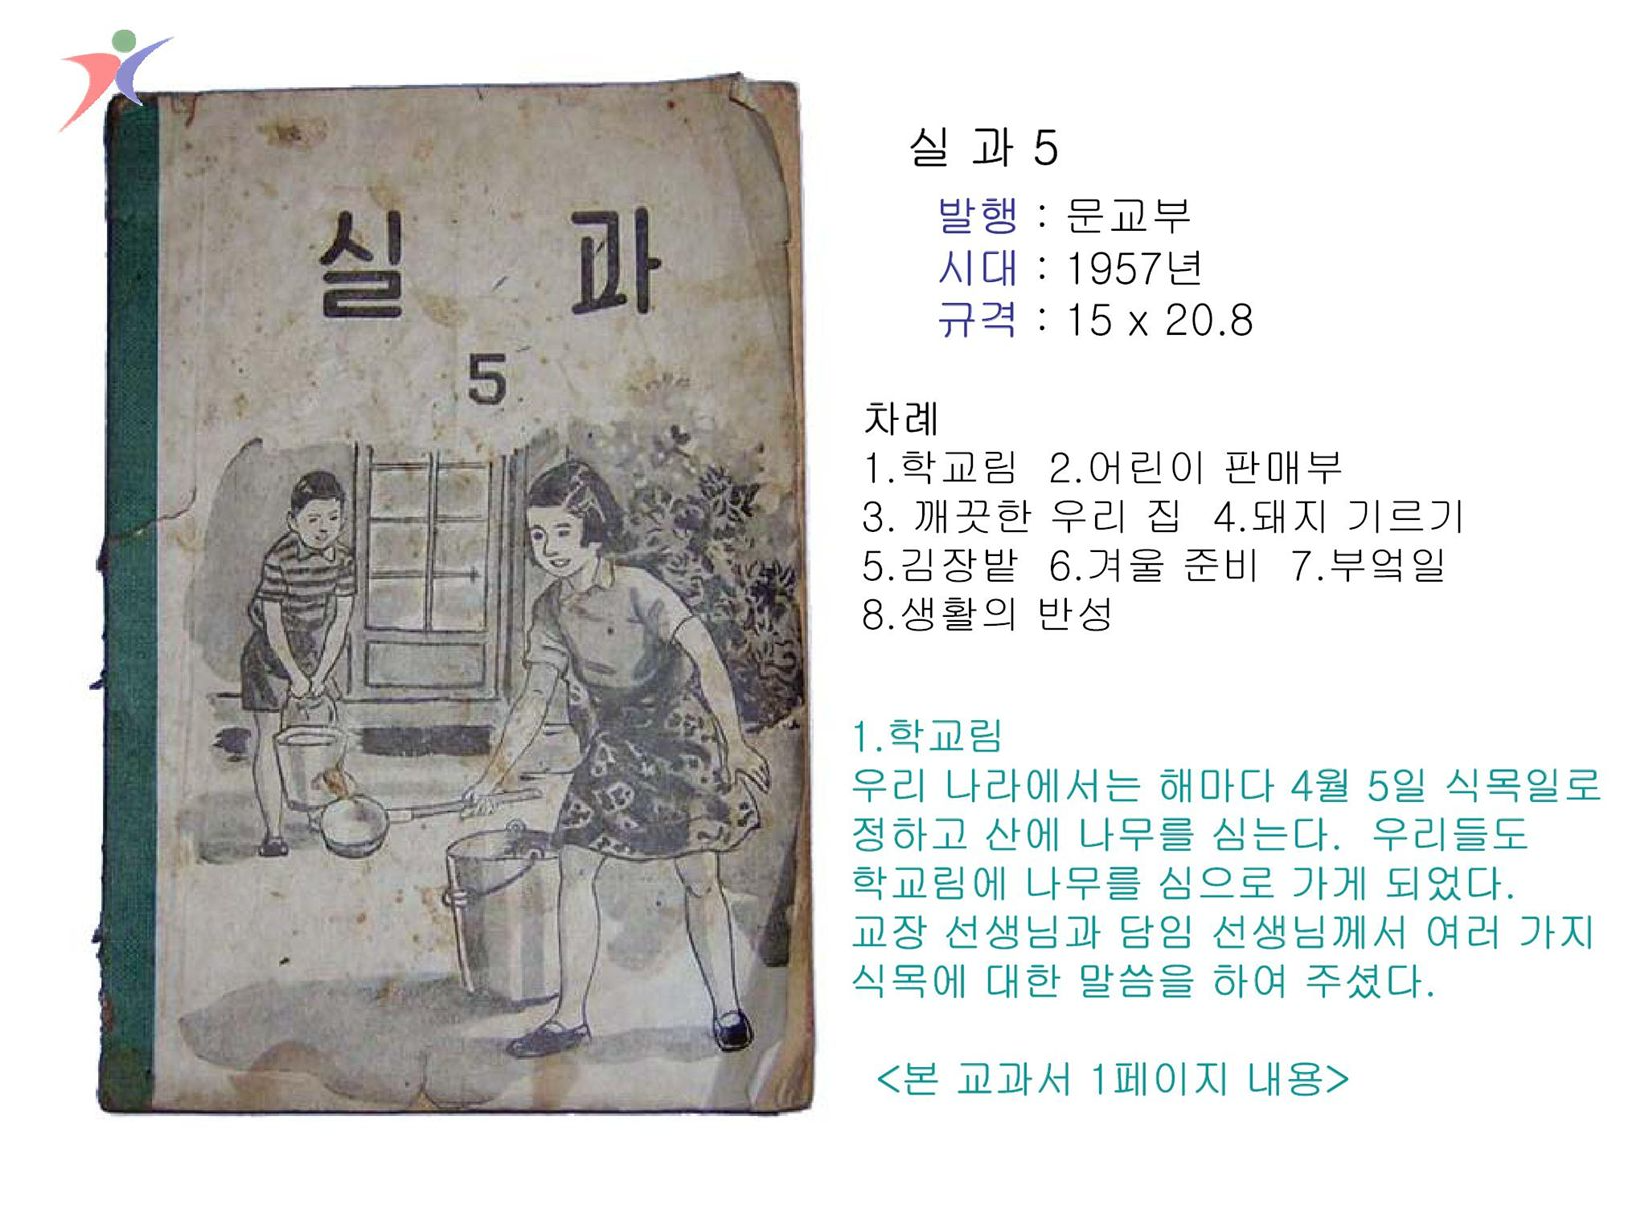 실 과
5
실 과 5
발행 : 문교부
시대 : 1957년
규격 : 15 x 20.8
차례
1.학교림 2.어린이 판매부
3. 깨끗한 우리 집 4.돼지 기르기
5.김장밭 6.겨울 준비 7.부엌일
8.생활의 반성
1.학교림
우리 나라에서는 해마다 4월 5일 식목일로
정하고 산에 나무를 심는다. 우리들도
학교림에 나무를 심으로 가게 되었다.
교장 선생님과 담임 선생님께서 여러 가지
식목에 대한 말씀을 하여 주셨다.
<본 교과서 1페이지 내용>